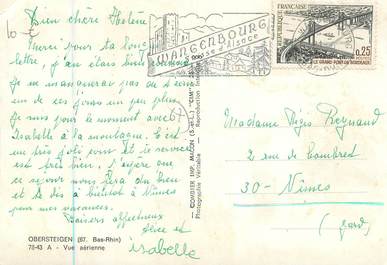 Bien chère Hélène
Merci pour ta longue
lettre, j'en étais bien contente
Je ne manquerai pas de
de ces jours un peu plus
Je suis pour le moment avec
Isabelle à la montagne. C'est
un très joli pont et le service
est très bien. J'espère que
ce séjour nous fera du bien
et te dis à bientôt à Nimes
pour mes vacances.
Baisers affectueux
Alice et
isabelle
OBERSTEIGEN (67. Bas-Rhin)
78-43 A - Vue aérienne
COMBIER IMP. MACON (S.-et-L.) "CIM"
Photographie Véritable - Reproduction
WANGENBOURG
Suisse d'Alsace
RÉPUBLIQUE FRANÇAISE
POSTES
0,25
LE GRAND PONT DE BORDEAUX
Madame Régis Reynaud
2 rue de Combret
30 - Nimes
(Gard)